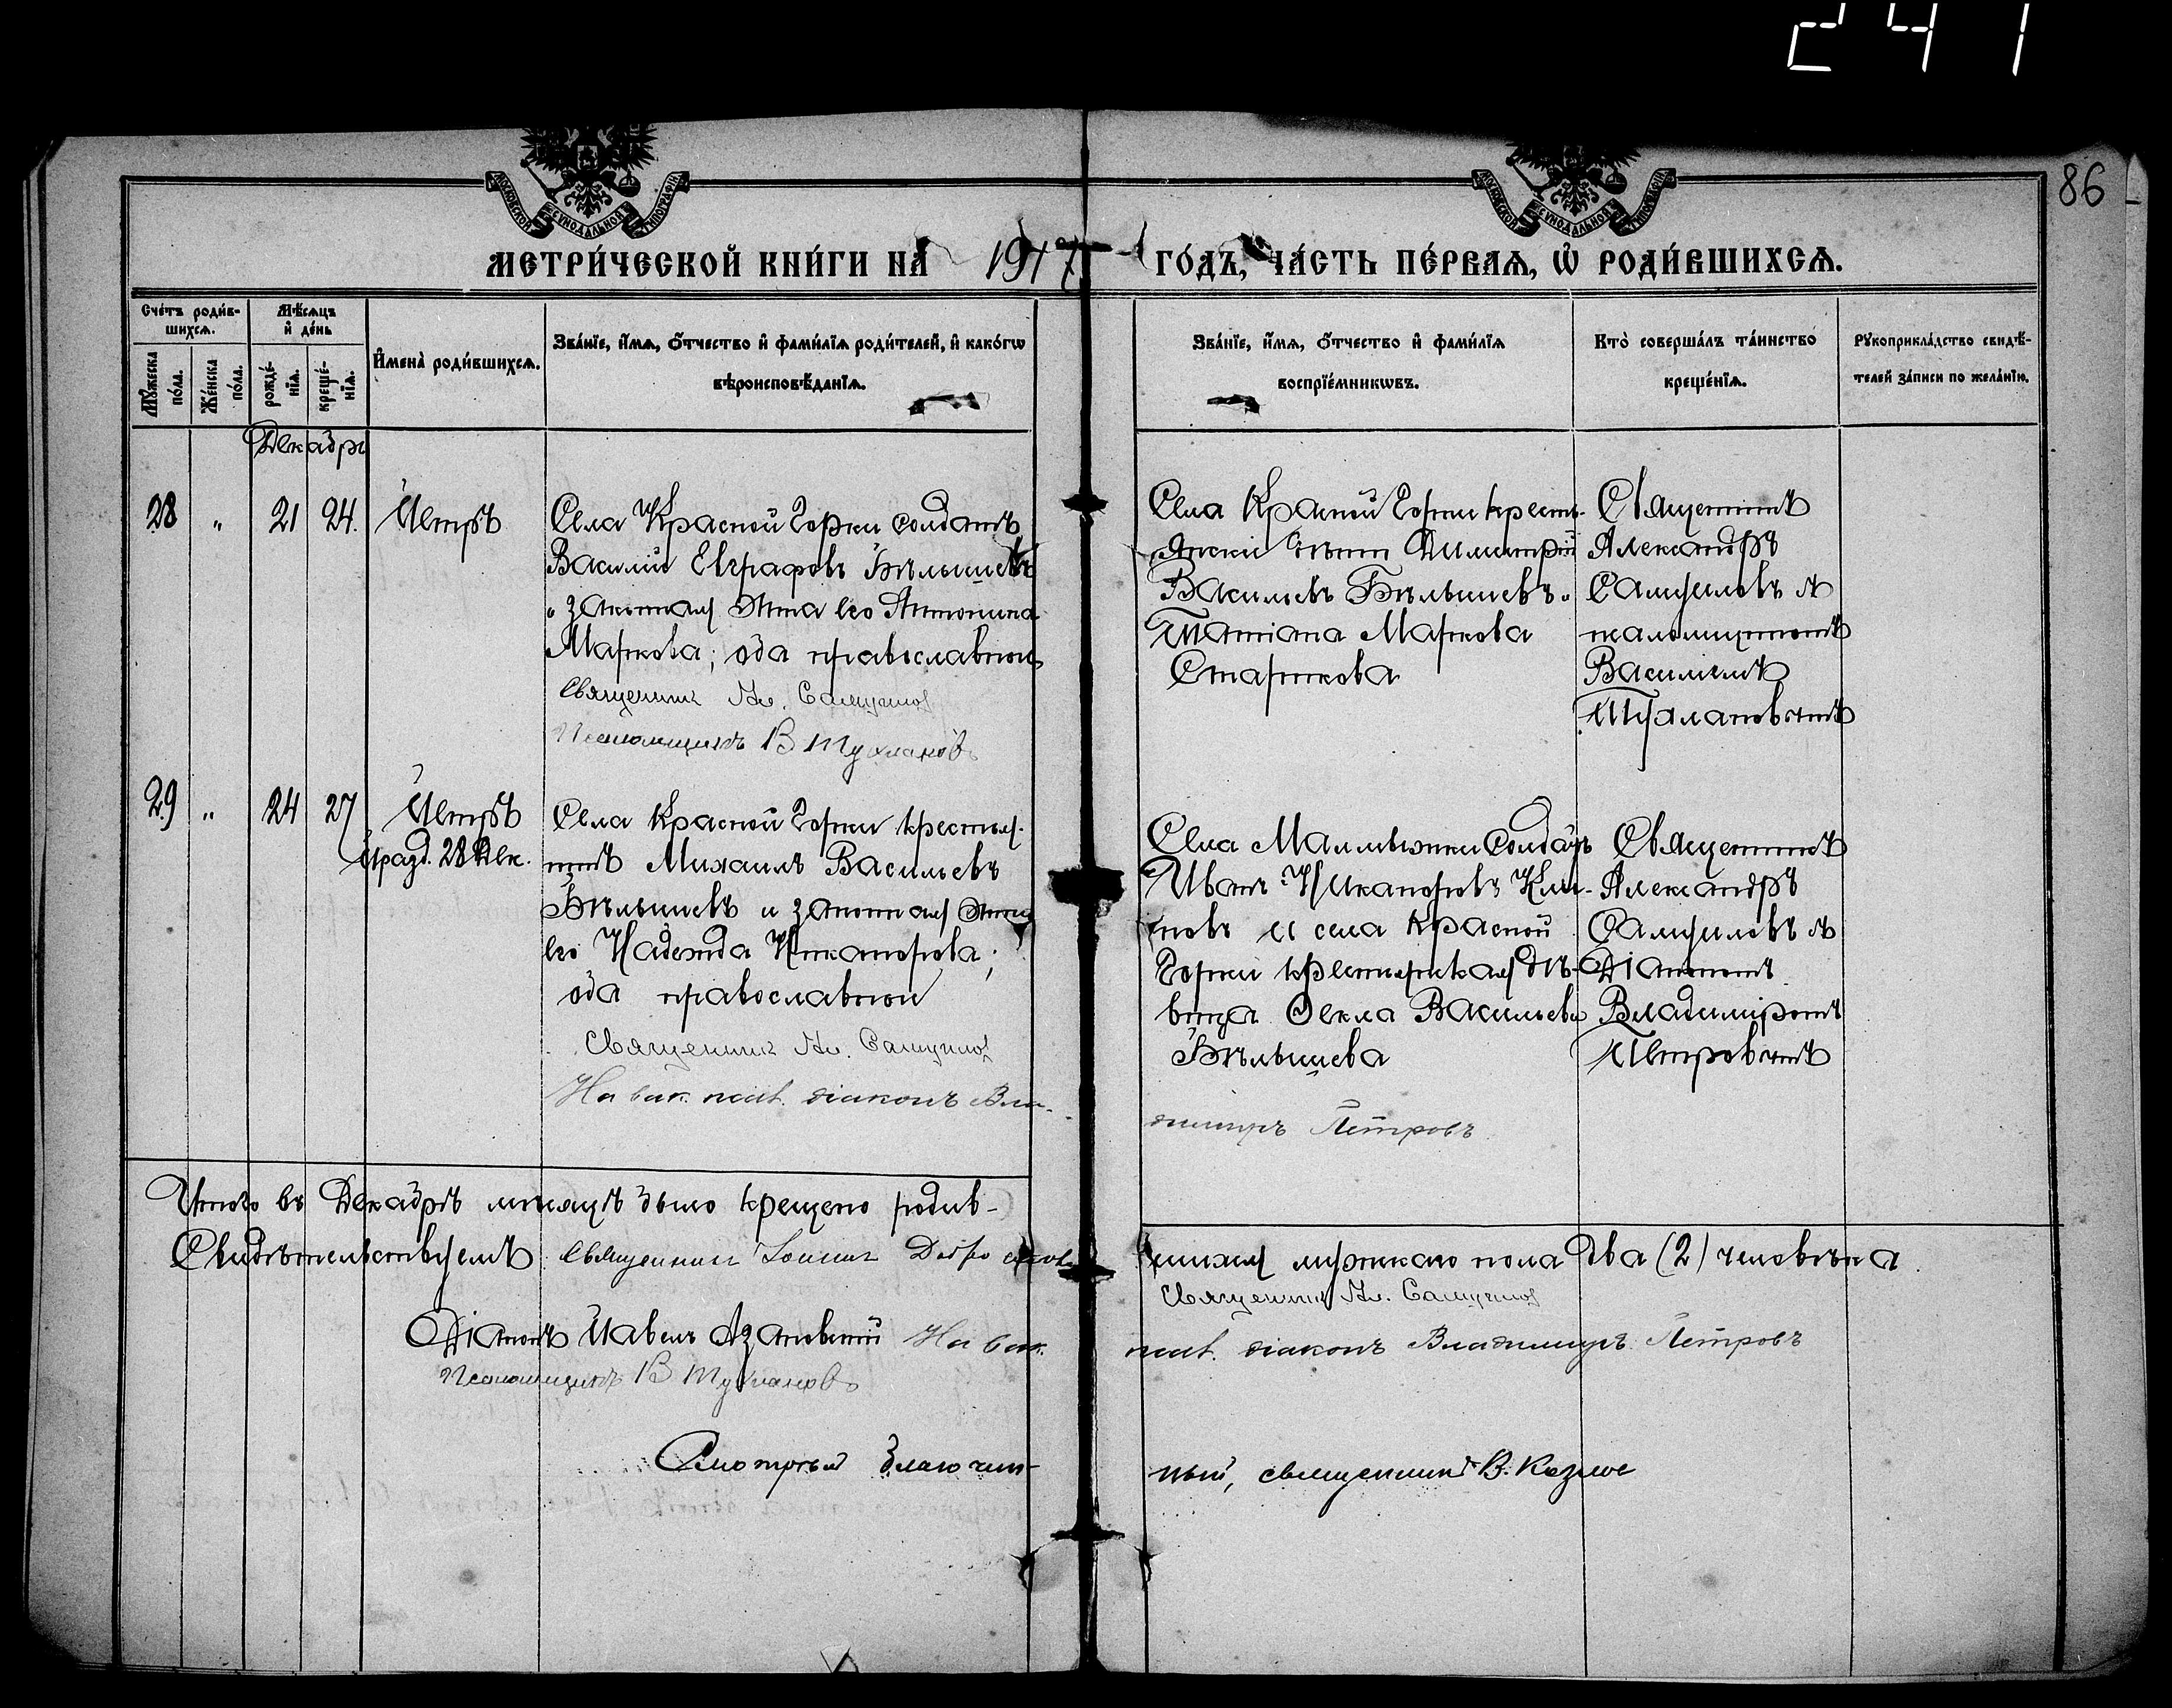 241
86
МОСКОВСКОЙ СУНОДАЛЬНОЙ ТИПОГРАФІИ
МОСКОВСКОЙ СУНОДАЛЬНОЙ ТИПОГРАФІИ
МЕТРИ́ЧЕСКОЙ КНИ́ГИ НА 1917 ГО́ДЪ, ЧА́СТЬ ПЕ́РВАѦ, Ѡ РОДИ́ВШИХСѦ.
Сче́тъ роди́в-
шихсѧ.
Мѣ́сѧцъ
и҆ де́нь
Мꙋ́жеска
по́ла.
Же́нска
по́ла.
рожде́-
нїѧ.
креще́-
нїѧ.
И҆мена̀ роди́вшихсѧ.
Зва́нїе, и҆́мѧ, ѻ҆́тчество и҆ фами́лїѧ роди́телей, и҆ како́гѡ
вѣроисповѣ́данїѧ.
Зва́нїе, и҆́мѧ, ѻ҆́тчество и҆ фами́лїѧ
воспрїе́мникѡвъ.
Кто̀ соверша́лъ та́инство
креще́нїѧ.
Рꙋкоприкла́дство свидѣ́-
телей за́писи по жела́нїю.
Декабрь
28 " 21 24. Петръ
Села Красной Горки солдатъ
Василій Евграфовъ Бѣлышевъ
и законная жена его Антонина
Маркова; оба православнои
Священник Ал. Самуилов
Псаломщикъ В Тухланов
Села Красной Горки кресть-
янскій Димитрій
Васильевъ Бѣлышевъ и
Татіана Маркова
Старкова
Священникъ
Александръ
Самуиловъ съ
псаломщикомъ
Василіемъ
29 " 24 27 Петръ
празд. 28 Дек.
Села Красной Горки крестья-
нинъ Михаилъ Васильевъ
Бѣлышевъ и законная жена
его Надежда Никанорова;
оба православнои
Священник Ал. Самуилов
На вак. псал. діаконъ Вла-
димиръ Петровъ
Села Солдатъ
Иванъ Никаноровъ Кли-
новъ и села Красной
Горки крестьянская дѣ-
вица Ѳекла Васильева
Бѣлышева
Священникъ
Александръ
Самуиловъ съ
Діакономъ
Владиміромъ
Петровымъ
Итого въ Декабрѣ мѣсяцѣ было крещено родив-
шихся мужскаго пола два (2) человѣка
Свидѣтельствуемъ Священник Іоаннъ
Священник Ал. Самуилов
Діаконъ Павелъ Азановскій На вак.
псал. діаконъ Владимиръ Петровъ
Псаломщикъ В Тухланов
Смотрѣлъ благочин-
ный, священникъ В. Козлов